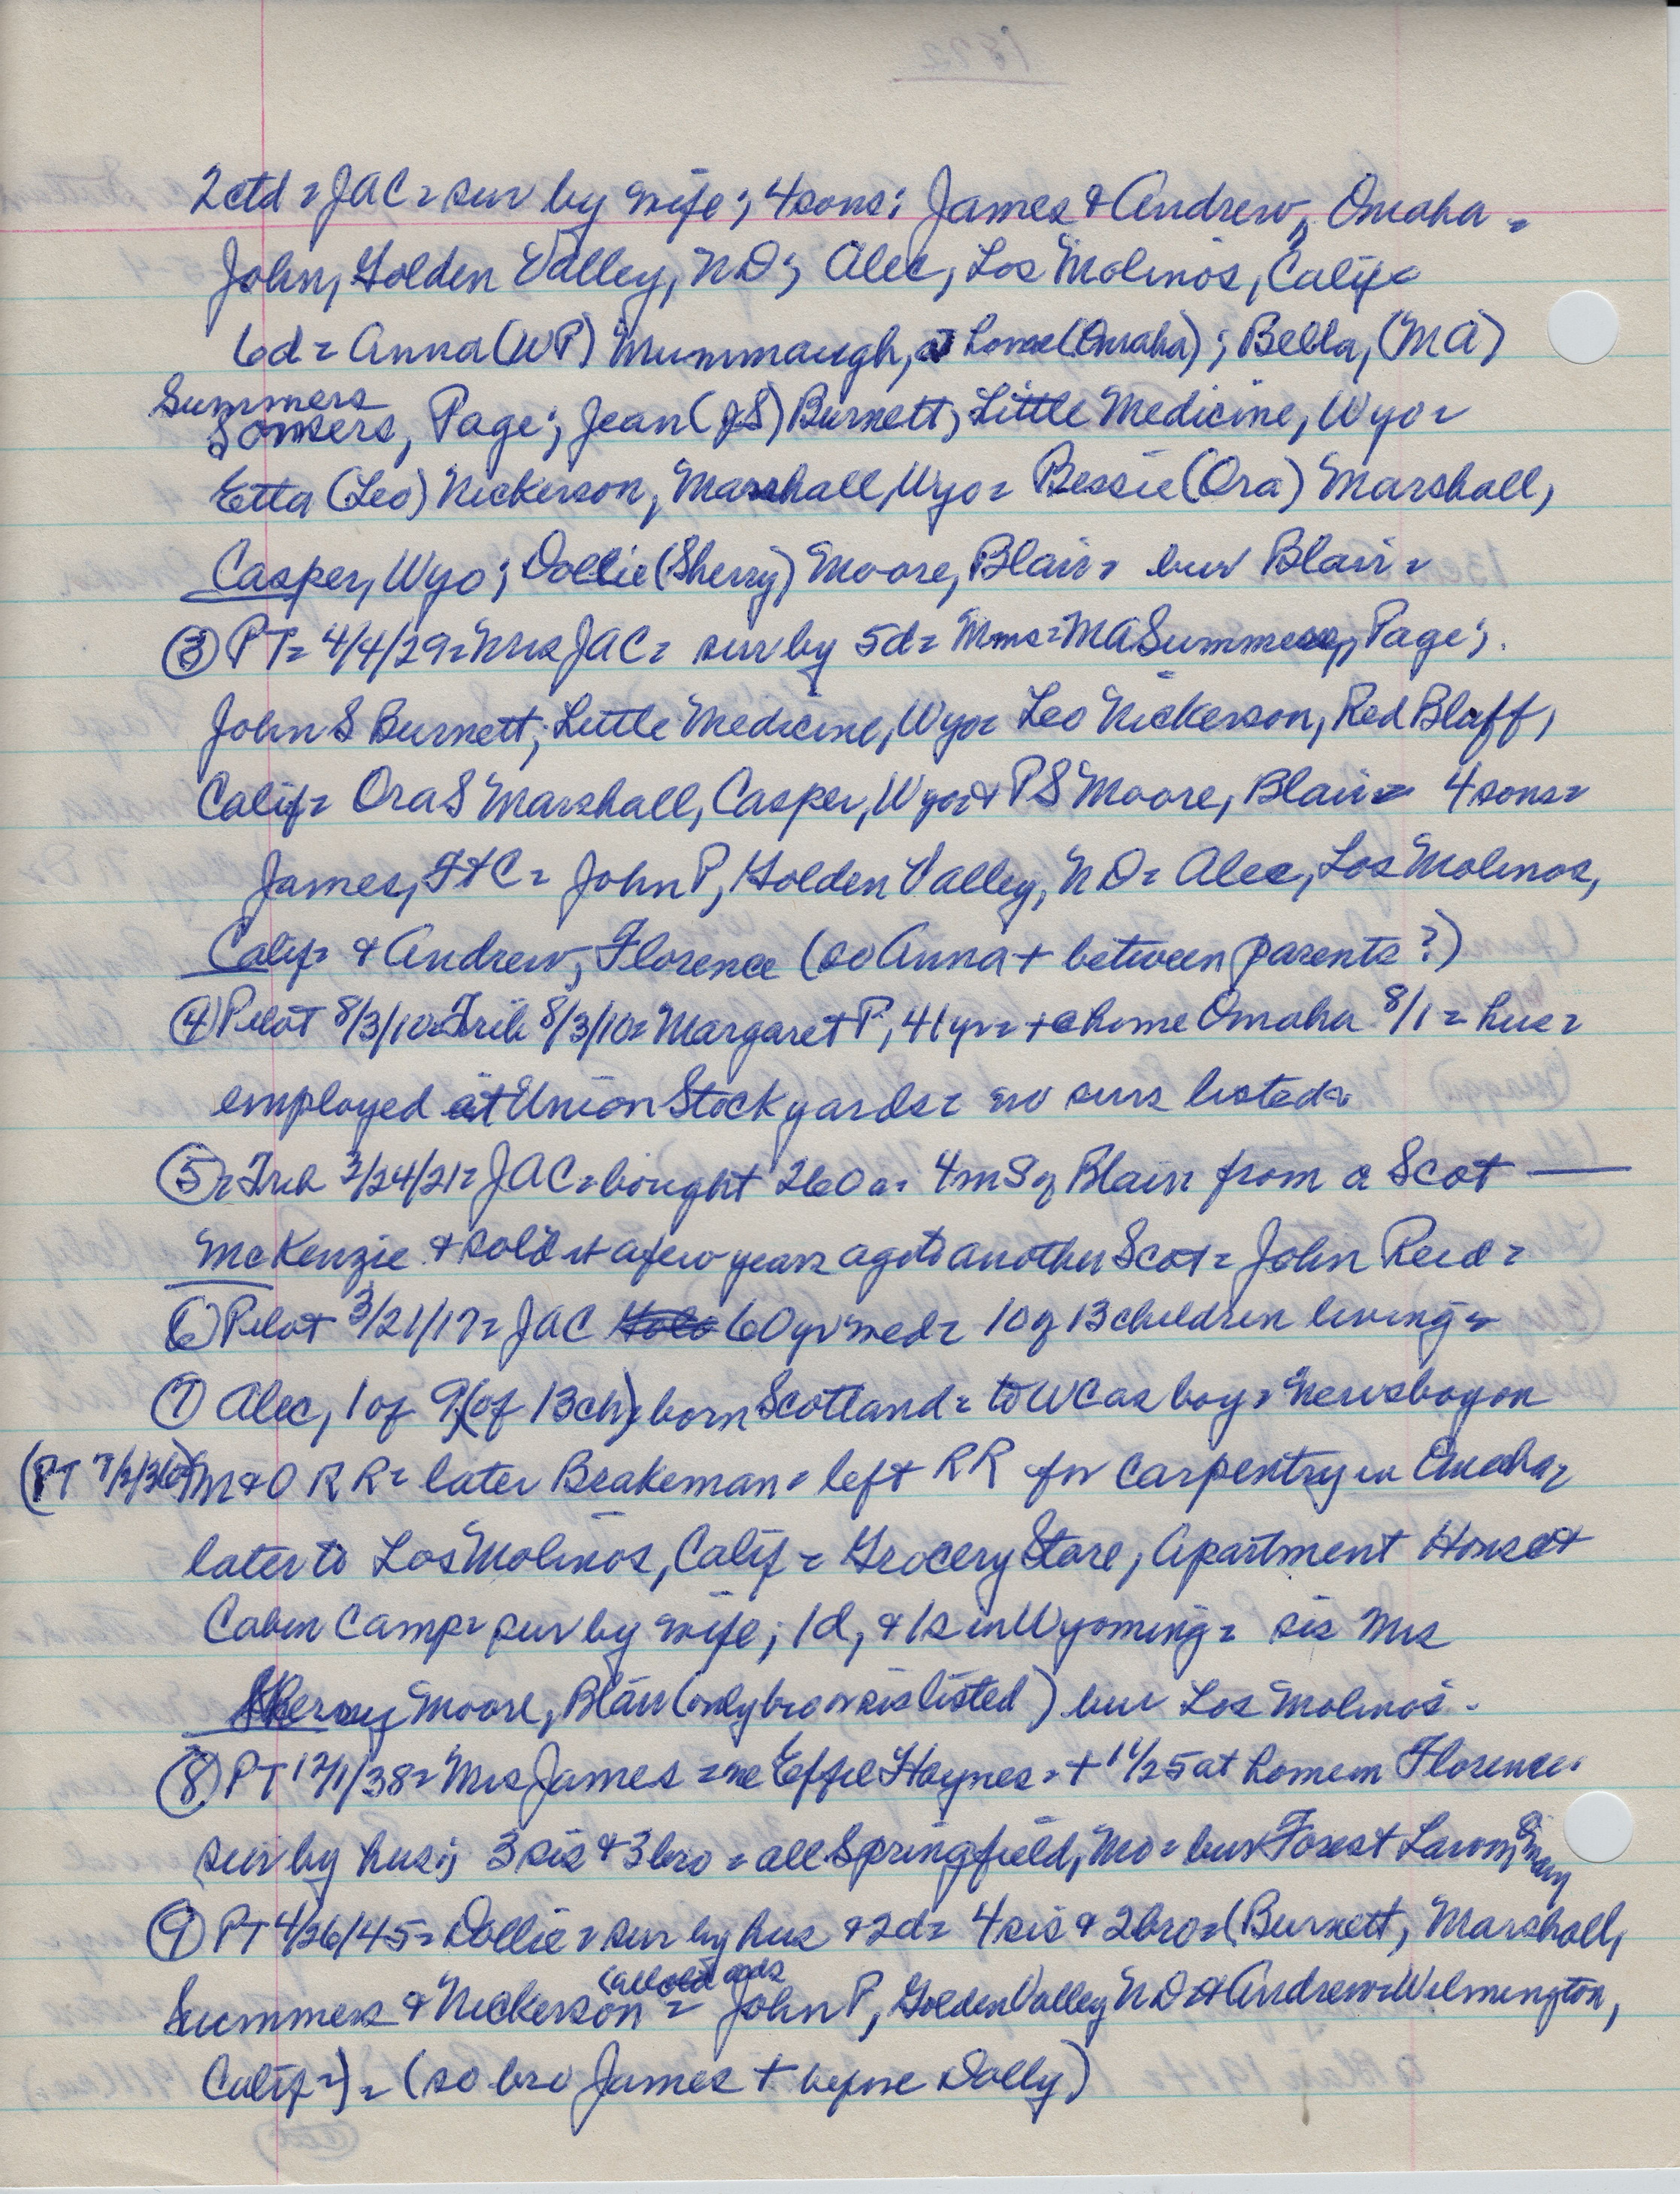 2ctd = JAC = sur by wife; 4 sons: James & Andrew, Omaha =
John, Golden Valley, ND; Alec, Los Molinos, Calif =
6d = Anna (WP) Mummaugh, (Omaha); Bella, (MA)
Summers
Somsers, Page; Jean (JS) Burnett, Little Medicine, Wyo =
Etta (Leo) Nickerson, Marshall, Wyo = Bessie (Ora) Marshall,
Casper, Wyo; Dollie (Sherry) Moore, Blair = bur Blair =
③ PT = 4/4/29 = Mrs JAC = sur by 5d = Mms = MA Summers, Page;
John S Burnett, Little Medicine, Wyo = Leo Nickerson, Red Bluff,
Calif = Ora S Marshall, Casper, Wyo = & PS Moore, Blair = 4 sons =
James, Ft C = John P, Golden Valley, ND = Alec, Los Molinos,
Calif = & Andrew, Florence (so Anna + between parents?)
④ Pilot 8/3/10 = Trib 8/3/10 = Margaret P, 41 yr = + @ home Omaha 8/1 = hus =
employed at Union Stockyards = no surs listed =
⑤ = Trib 3/24/21 = JAC = bought 260 a = 4 m S of Blair from a Scot —
McKenzie & sold it a few years ago to another Scot = John Reid =
⑥ Pilot 3/21/17 = JAC 60 yr med = 10 of 13 children living =
⑦ Alec, 1 of 9 (of 13 ch) born Scotland = to WC as boy = Newsboy on
(PT 7/2/36) M & O RR = later Brakeman = left RR for carpentry in Omaha =
later to Los Molinos, Calif = Grocery Store, Apartment House &
Cabin Camp = sur by wife; 1d, & 1s in Wyoming = sis Mrs
Sherry Moore, Blair (only bro or sis listed) bur Los Molinos =
⑧ PT 12/1/38 = Mrs James = ne Effie Haynes = + 11/25 at home in Florence =
sur by hus; 3 sis & 3 bro = all Springfield, Mo = bur Forest Lawn, Omaha
⑨ PT 4/26/45 = Dollie = sur by hus & 2d = 4 sis & 2 bro = (Burnett, Marshall,
(all old adds
Summers & Nickerson = John P, Golden Valley ND & Andrew = Wilmington,
Calif =) = (so bro James + before Dolly)